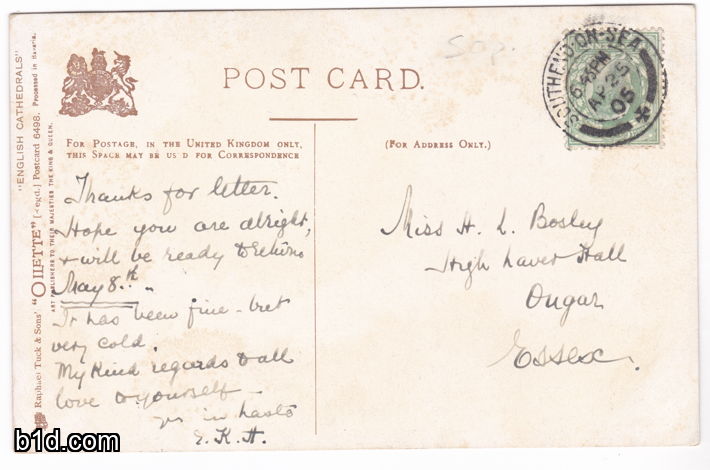 50p.
POST CARD.
SOUTHEND-ON-SEA
6.45PM
AP 25
05
FOR POSTAGE, IN THE UNITED KINGDOM ONLY,
THIS SPACE MAY BE US D FOR CORRESPONDENCE
(FOR ADDRESS ONLY.)
Thanks for letter.
Hope you are alright,
& will be ready to return
May 8th.
It has been fine - but
very cold.
My kind regards to all
love to yourself
yrs in haste
E.K.H.
Miss H. L. Bosley
High Laver Hall
Ongar
Essex.
"ENGLISH CATHEDRALS" Processed in Bavaria.
Raphael Tuck & Sons' "OILETTE" [Regd.] Postcard 6498.
ART PUBLISHERS TO THEIR MAJESTIES THE KING & QUEEN.
b1d.com